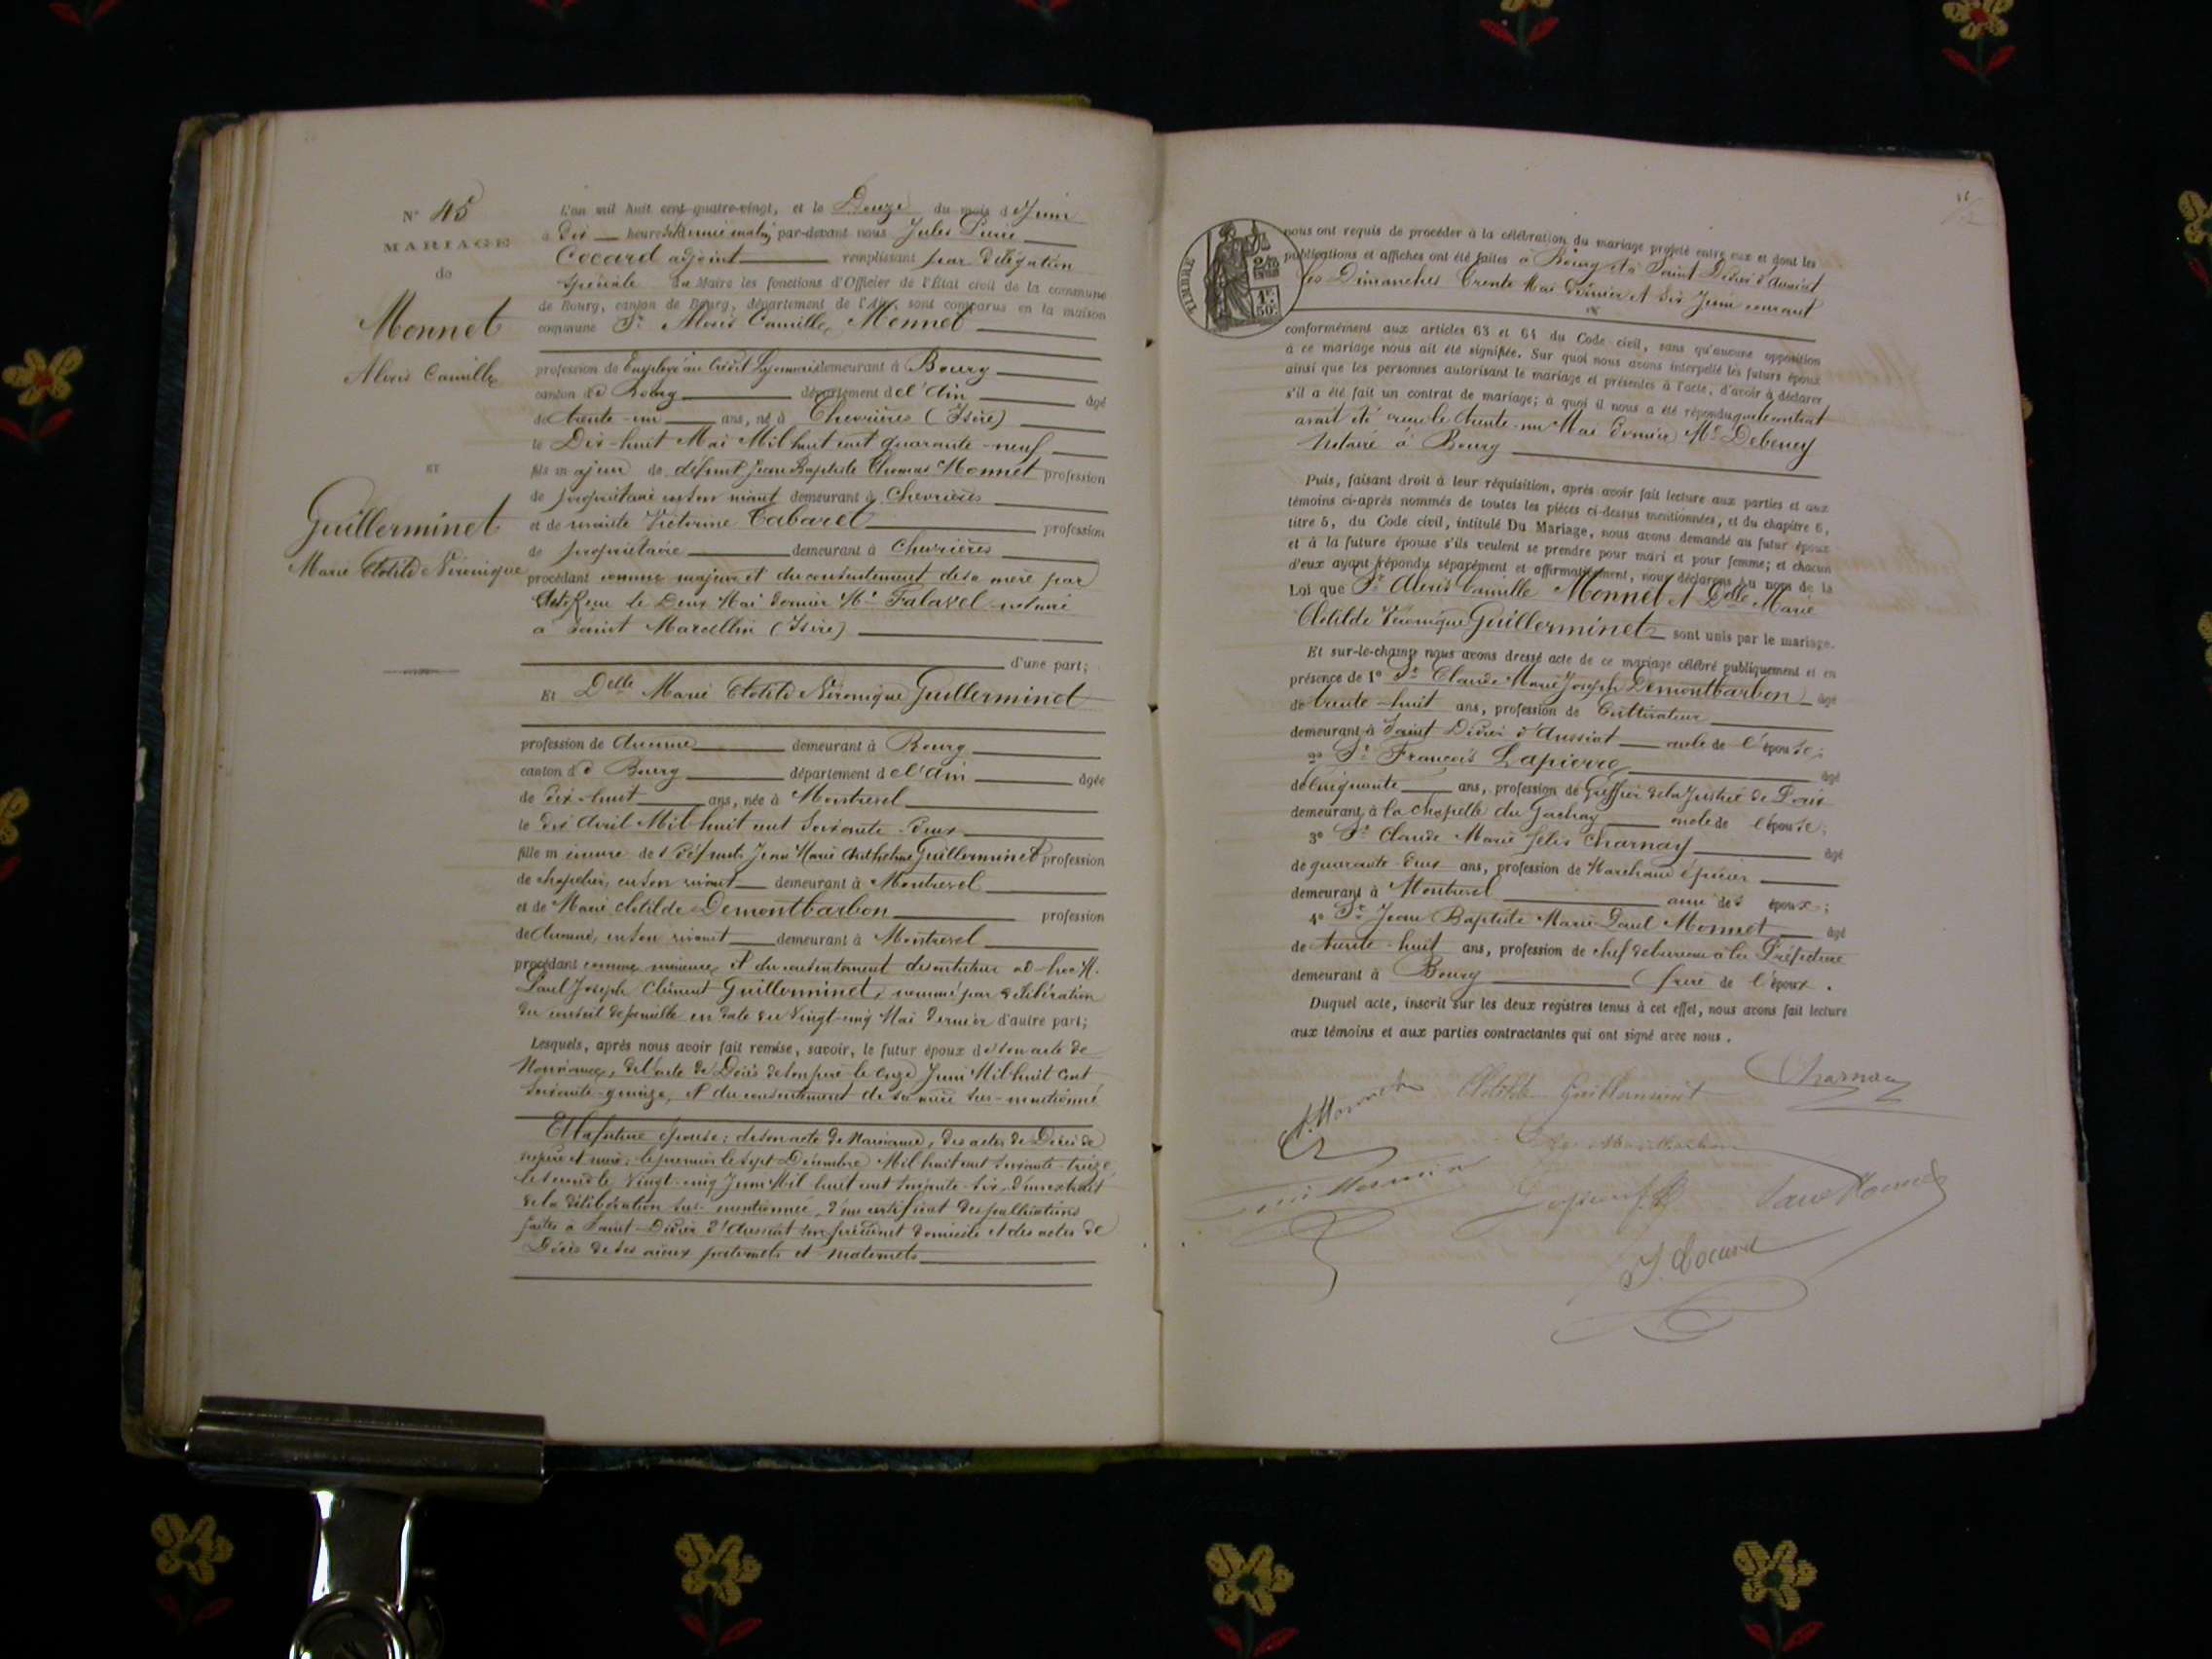 N° 45
MARIAGE
de
Monnet
Alexis Camille
ET
Guillerminet
Marie Clotilde Véronique
L'an mil huit cent quatre-vingt, et le Douze du mois de Juin
à dix heures et demie matin par-devant nous Jules Pierre
Cocard adjoint remplissant par délégation
spéciale du Maire les fonctions d'Officier de l'État civil de la commune
de Bourg, canton de Bourg, département de l'Ain, sont comparus en la maison
commune Sr Alexis Camille Monnet
profession de Employé au Crédit Lyonnais demeurant à Bourg
canton de Bourg département de l'Ain âgé
de trente-un ans, né à Chevrières (Isère)
le Dix-huit Mai Mil huit cent quarante-neuf
fils majeur de défunt Jean Baptiste Thomas Monnet profession
de propriétaire en son vivant demeurant à Chevrières
et de vivante Victorine Cabaret profession
de propriétaire demeurant à Chevrières
procédant comme majeur et du consentement de sa mère par
Acte Reçu le Deux Mai dernier Me Falavel notaire
à Saint Marcellin (Isère)
d'une part;
Et Delle Marie Clotilde Véronique Guillerminet
profession de Aucune demeurant à Bourg
canton de Bourg département de l'Ain âgée
de dix-huit ans, née à Montrevel
le dix Avril Mil huit cent soixante-deux
fille mineure de défunts Jean Marie Anthelme Guillerminet profession
de chapelier, en son vivant demeurant à Montrevel
et de Marie Clotilde Demontbarbon profession
de Aucune, en son vivant demeurant à Montrevel
procédant comme mineure et du consentement de son tuteur ad-hoc M.
Paul Joseph Clément Guillerminet, nommé par délibération
du conseil de famille en date du Vingt-cinq Mai dernier d'autre part;
Lesquels, après nous avoir fait remise, savoir, le futur époux de son acte de
Naissance, de l'acte de Décès de son père le onze Juin Mil huit cent
soixante-quinze, et du consentement de sa mère sus-mentionné
Et la future épouse: de son acte de Naissance, des actes de Décès de
ses père et mère, le premier le sept Décembre Mil huit cent soixante-treize,
le second le Vingt-cinq Juin Mil huit cent soixante-six, d'un extrait
de la délibération sus-mentionnée, d'un certificat des publications
faites à Saint-Didier d'Aussiat son précédent domicile et des actes de
Décès de ses aïeux paternels et maternels
TIMBRE
1F 50c
nous ont requis de procéder à la célébration du mariage projeté entre eux et dont les
publications et affiches ont été faites à Bourg et à Saint Didier d'Aussiat
les Dimanches Trente Mai dernier et Six Juin courant
conformément aux articles 63 et 64 du Code civil, sans qu'aucune opposition
à ce mariage nous ait été signifiée. Sur quoi nous avons interpellé les futurs époux
ainsi que les personnes autorisant le mariage et présentes à l'acte, d'avoir à déclarer
s'il a été fait un contrat de mariage; à quoi il nous a été répondu que le contrat
avait été reçu le trente-un Mai dernier Me Debeney
Notaire à Bourg
Puis, faisant droit à leur réquisition, après avoir fait lecture aux parties et aux
témoins ci-après nommés de toutes les pièces ci-dessus mentionnées, et du chapitre 6,
titre 5, du Code civil, intitulé Du Mariage, nous avons demandé au futur époux
et à la future épouse s'ils veulent se prendre pour mari et pour femme; et chacun
d'eux ayant répondu séparément et affirmativement, nous déclarons au nom de la
Loi que Sr Alexis Camille Monnet et Delle Marie
Clotilde Véronique Guillerminet sont unis par le mariage.
Et sur-le-champ nous avons dressé acte de ce mariage célébré publiquement et en
présence de 1° Sr Claude Marie Joseph Demontbarbon âgé
de trente-huit ans, profession de Cultivateur
demeurant à Saint Didier d'Aussiat oncle de l'épouse;
2° Sr François Lapierre âgé
de Cinquante ans, profession de Greffier de la Justice de Paix
demeurant à la Chapelle du oncle de l'épouse;
3° Sr Claude Marie Félix Charnay âgé
de quarante-deux ans, profession de Marchand épicier
demeurant à Montrevel ami des époux;
4° Sr Jean Baptiste Marie Paul Monnet âgé
de trente-huit ans, profession de chef de bureau à la Préfecture
demeurant à Bourg frère de l'époux.
Duquel acte, inscrit sur les deux registres tenus à cet effet, nous avons fait lecture
aux témoins et aux parties contractantes qui ont signé avec nous.
A. Monnet Clotilde Guillerminet Charnay
Demontbarbon
Guillerminet Lapierre Paul Monnet
J. Cocard